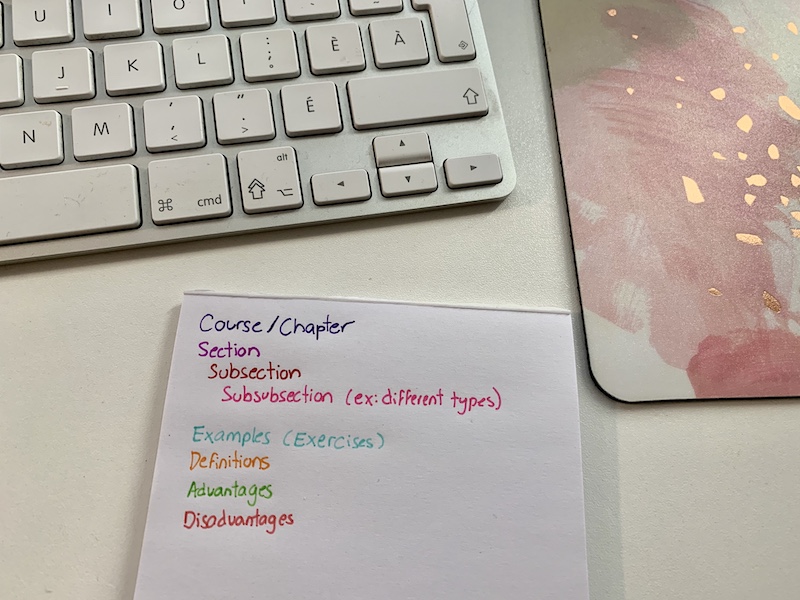 U I O
J K L : ; È À
N M ' , < " . > É
⌘ cmd alt
Course/Chapter
Section
Subsection
Subsubsection (ex: different types)
Examples (Exercises)
Definitions
Advantages
Disadvantages